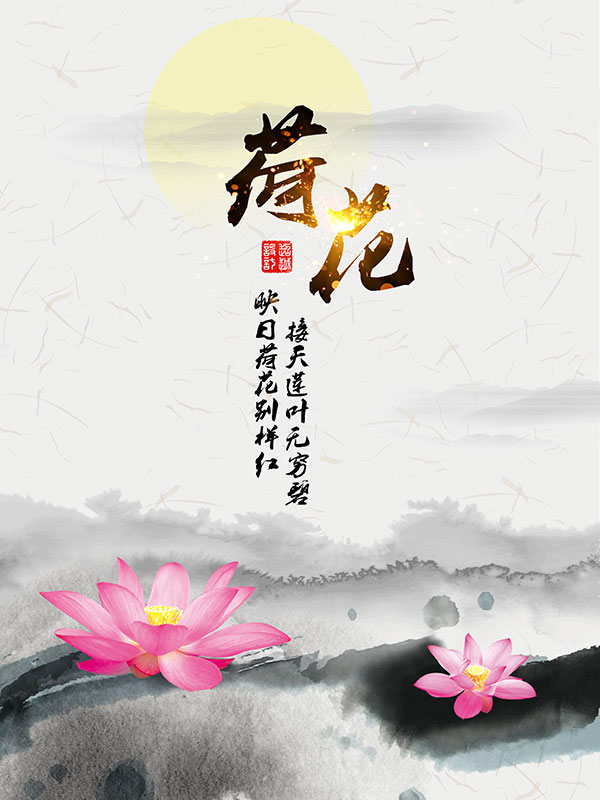 荷花
接天莲叶无穷碧
映日荷花别样红